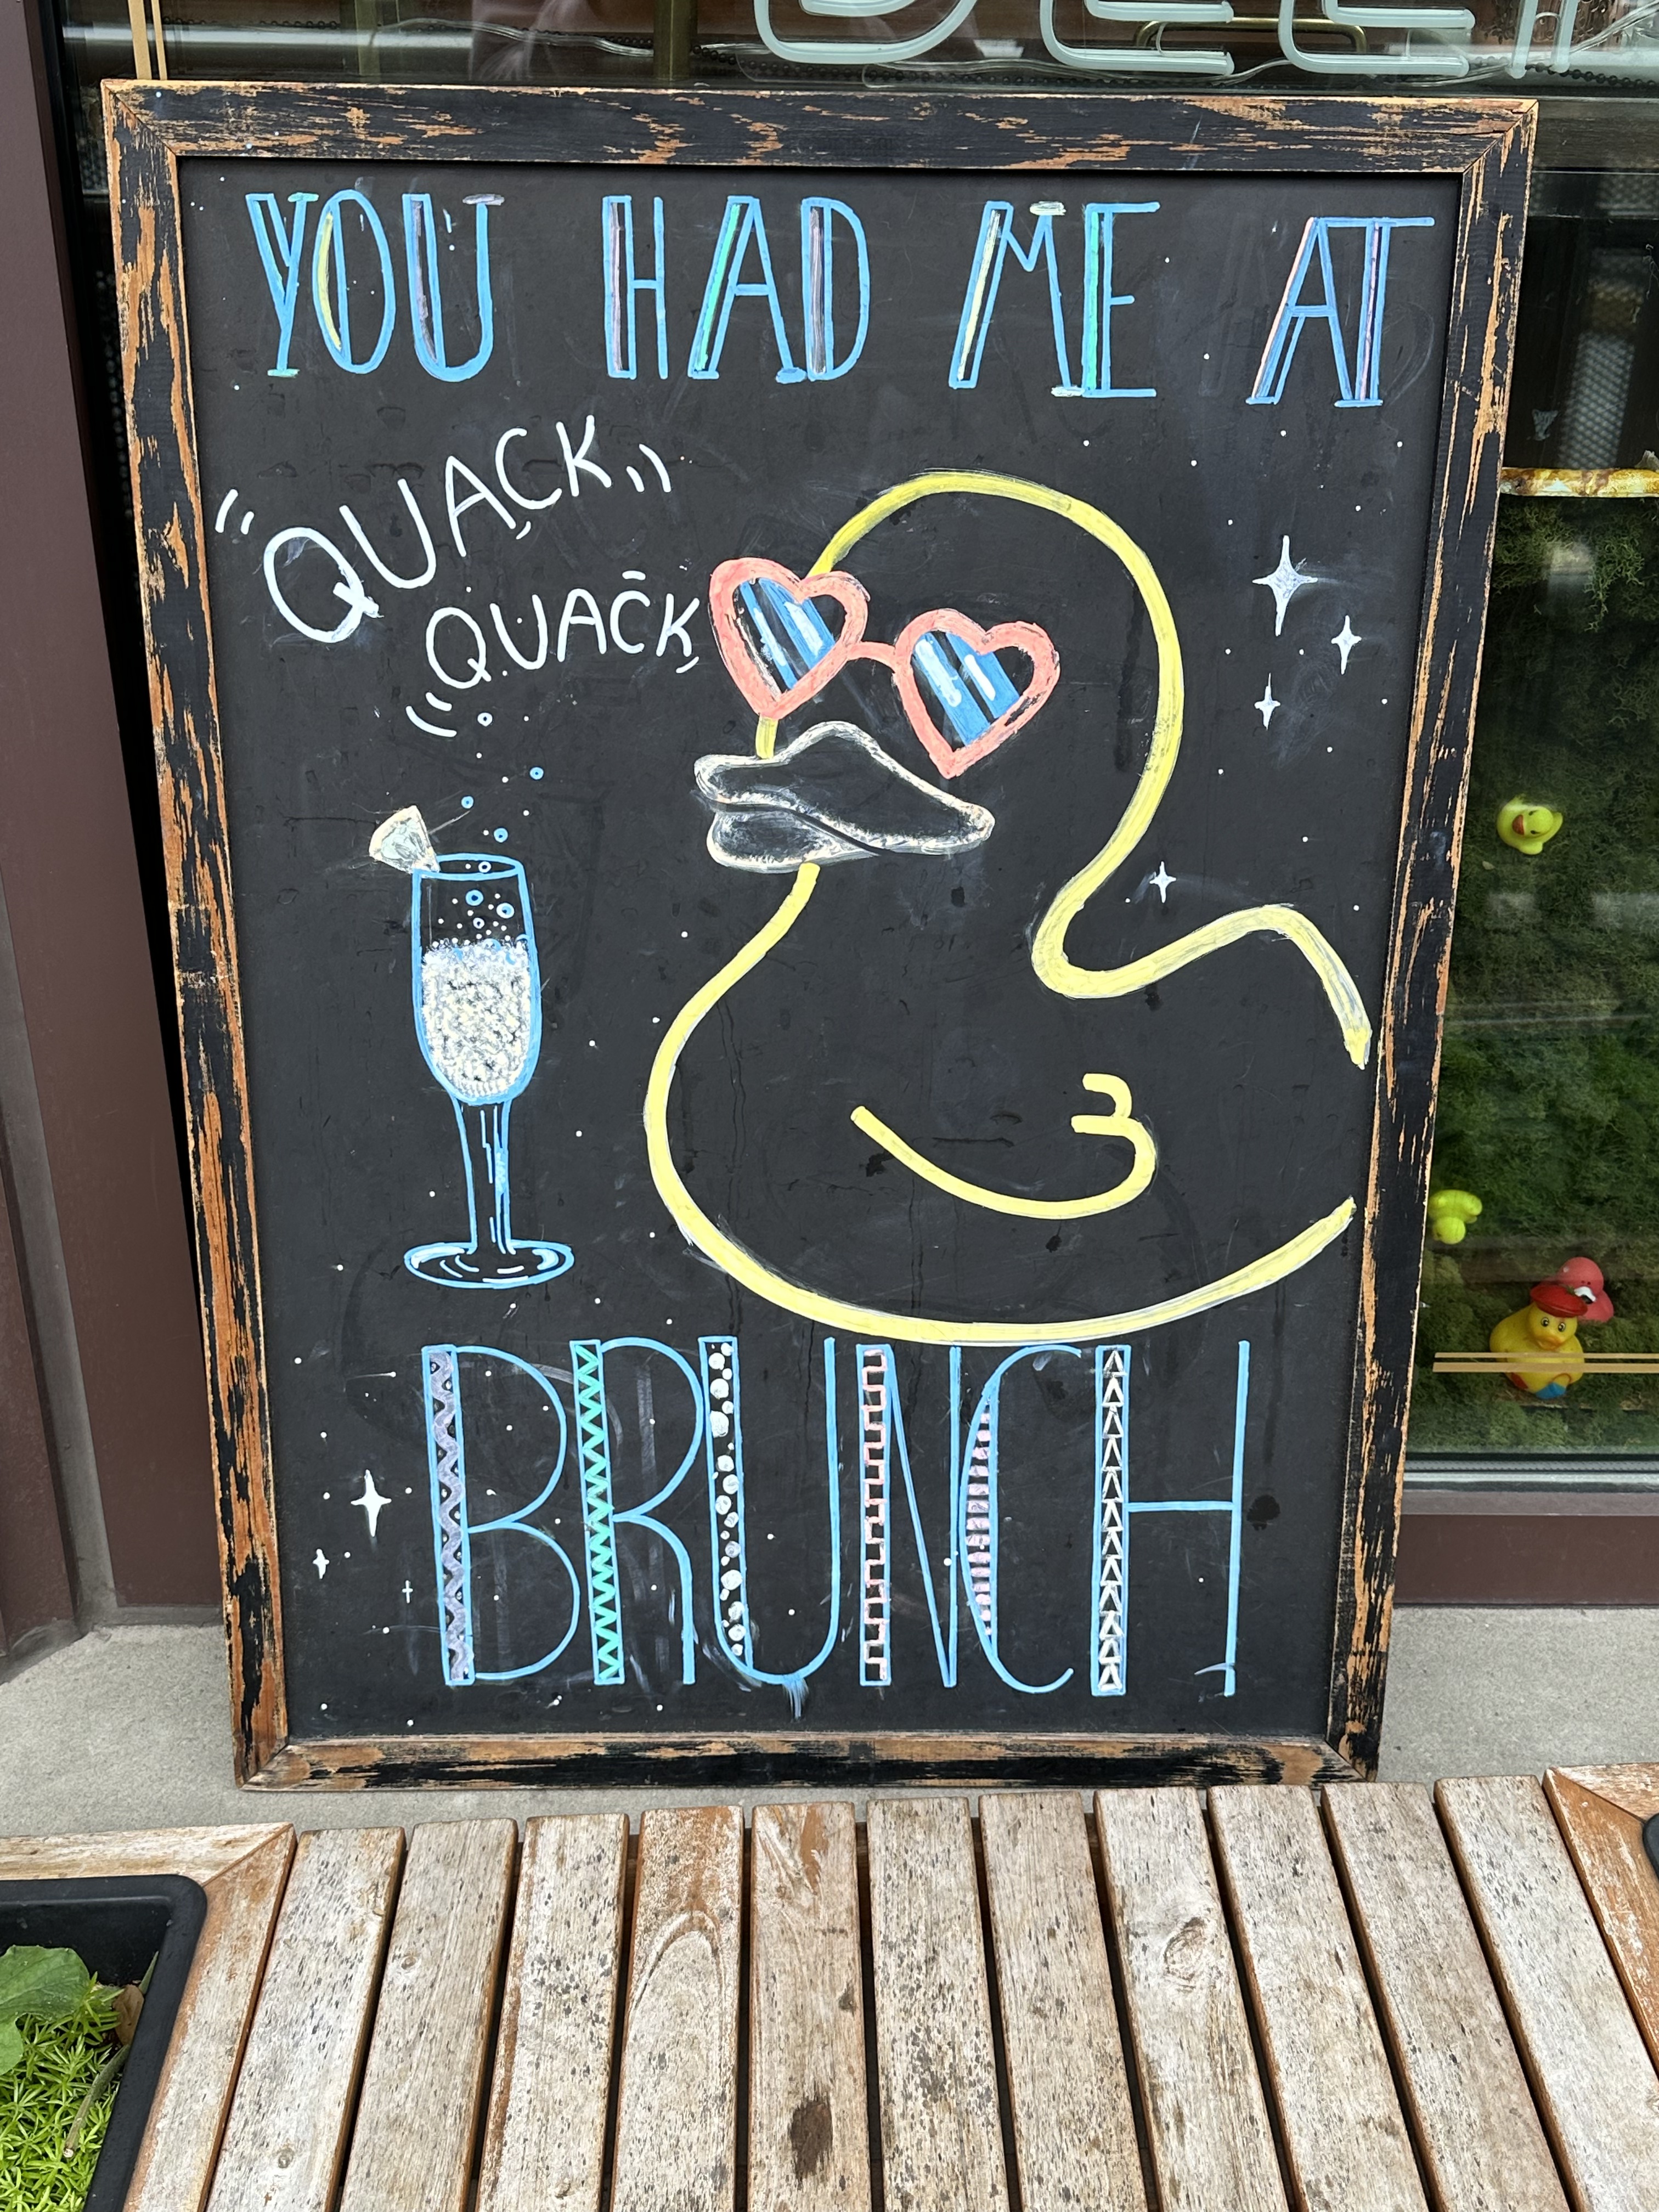 YOU HAD ME AT
"QUACK"
QUACK
BRUNCH